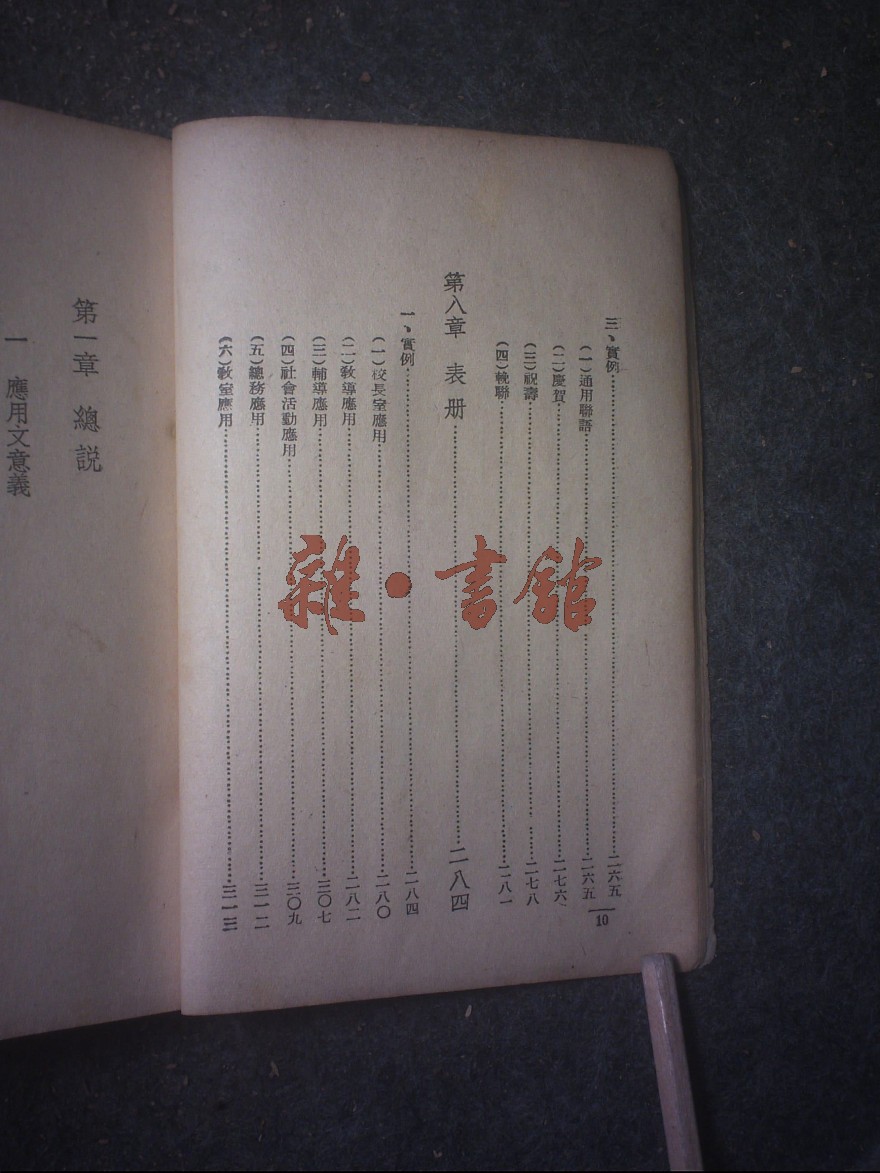 三、實例……二六五
(一)通用聯語……二六五
(二)慶賀……二七六
(三)祝壽……二七八
(四)輓聯……二八一
第八章 表册……二八四
一、實例……二八四
(一)校長室應用……二八〇
(二)敎導應用……二八二
(三)輔導應用……三〇七
(四)社會活動應用……三〇九
(五)總務應用……三一二
(六)敎室應用……三一三
10
第一章 總説
一 應用文意義
雜·書館